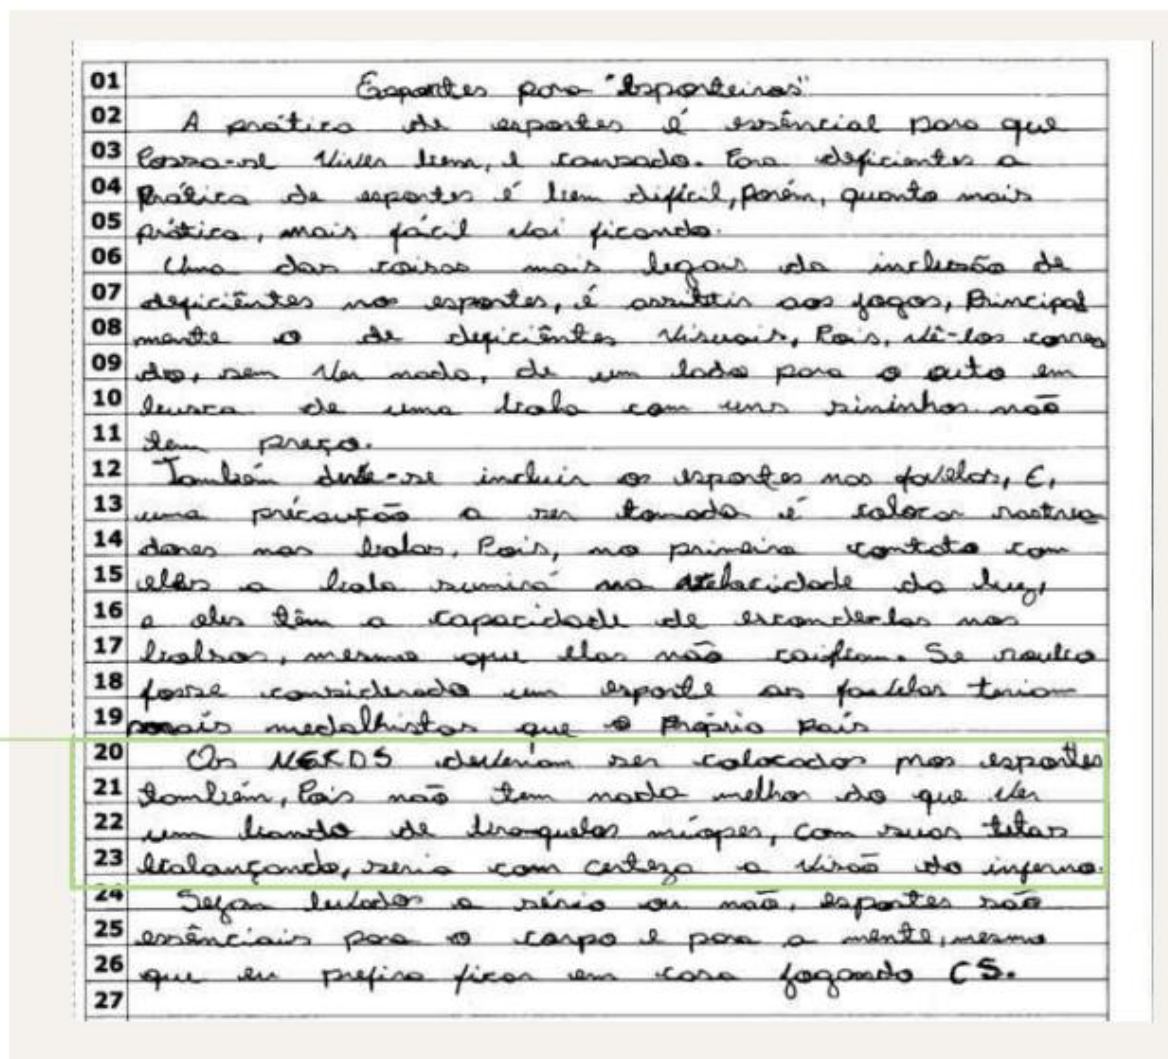 01 Esportes para "Esporteiros"
02 A prática de esportes é essêncial para que
03 Possa-se viver bem, e cansado. Para deficientes a
04 Prática de esportes é bem difícil, Porém, quanto mais
05 prática, mais fácil vai ficando.
06 Uma das coisas mais legais da inclusão de
07 deficiêntes nos esportes, é assistir aos jogos, Principal
08 mente o de deficiêntes visuais, Pois, vê-los corren
09 do, sem ver nada, de um lado para o outo em
10 busca de uma bola com uns sininhos não
11 tem preço.
12 Também deve-se incluir os esportes nas favelas, E,
13 uma précaução a ser tomada é colocar rastrea
14 dores nas bolas, Pois, no primeiro contato com
15 eles a bola sumirá na velocidade da luz,
16 e eles têm a capacidade de esconde-las nos
17 bolsos, mesmo que elas não caibam. Se roubo
18 fosse considerado um esporte as favelas teriam
19 mais medalhistas que o Próprio País
20 Os NERDS deveriam ser colocados nos esportes
21 também, Pois não tem nada melhor do que ver
22 um bando de branquelos míopes, com suas tetas
23 balançando, seria com certeza a visão do inferno.
24 Sejam levados a sério ou não, esportes são
25 essênciais para o corpo e para a mente, mesmo
26 que eu prefira ficar em casa jogando CS.
27